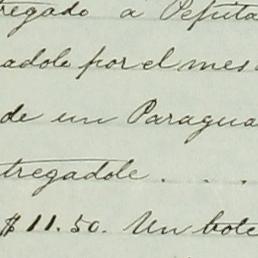 tregado a Peputa
adole por el mes
de un Paragua
tregadole . . . .
$ 11.50. Un bote